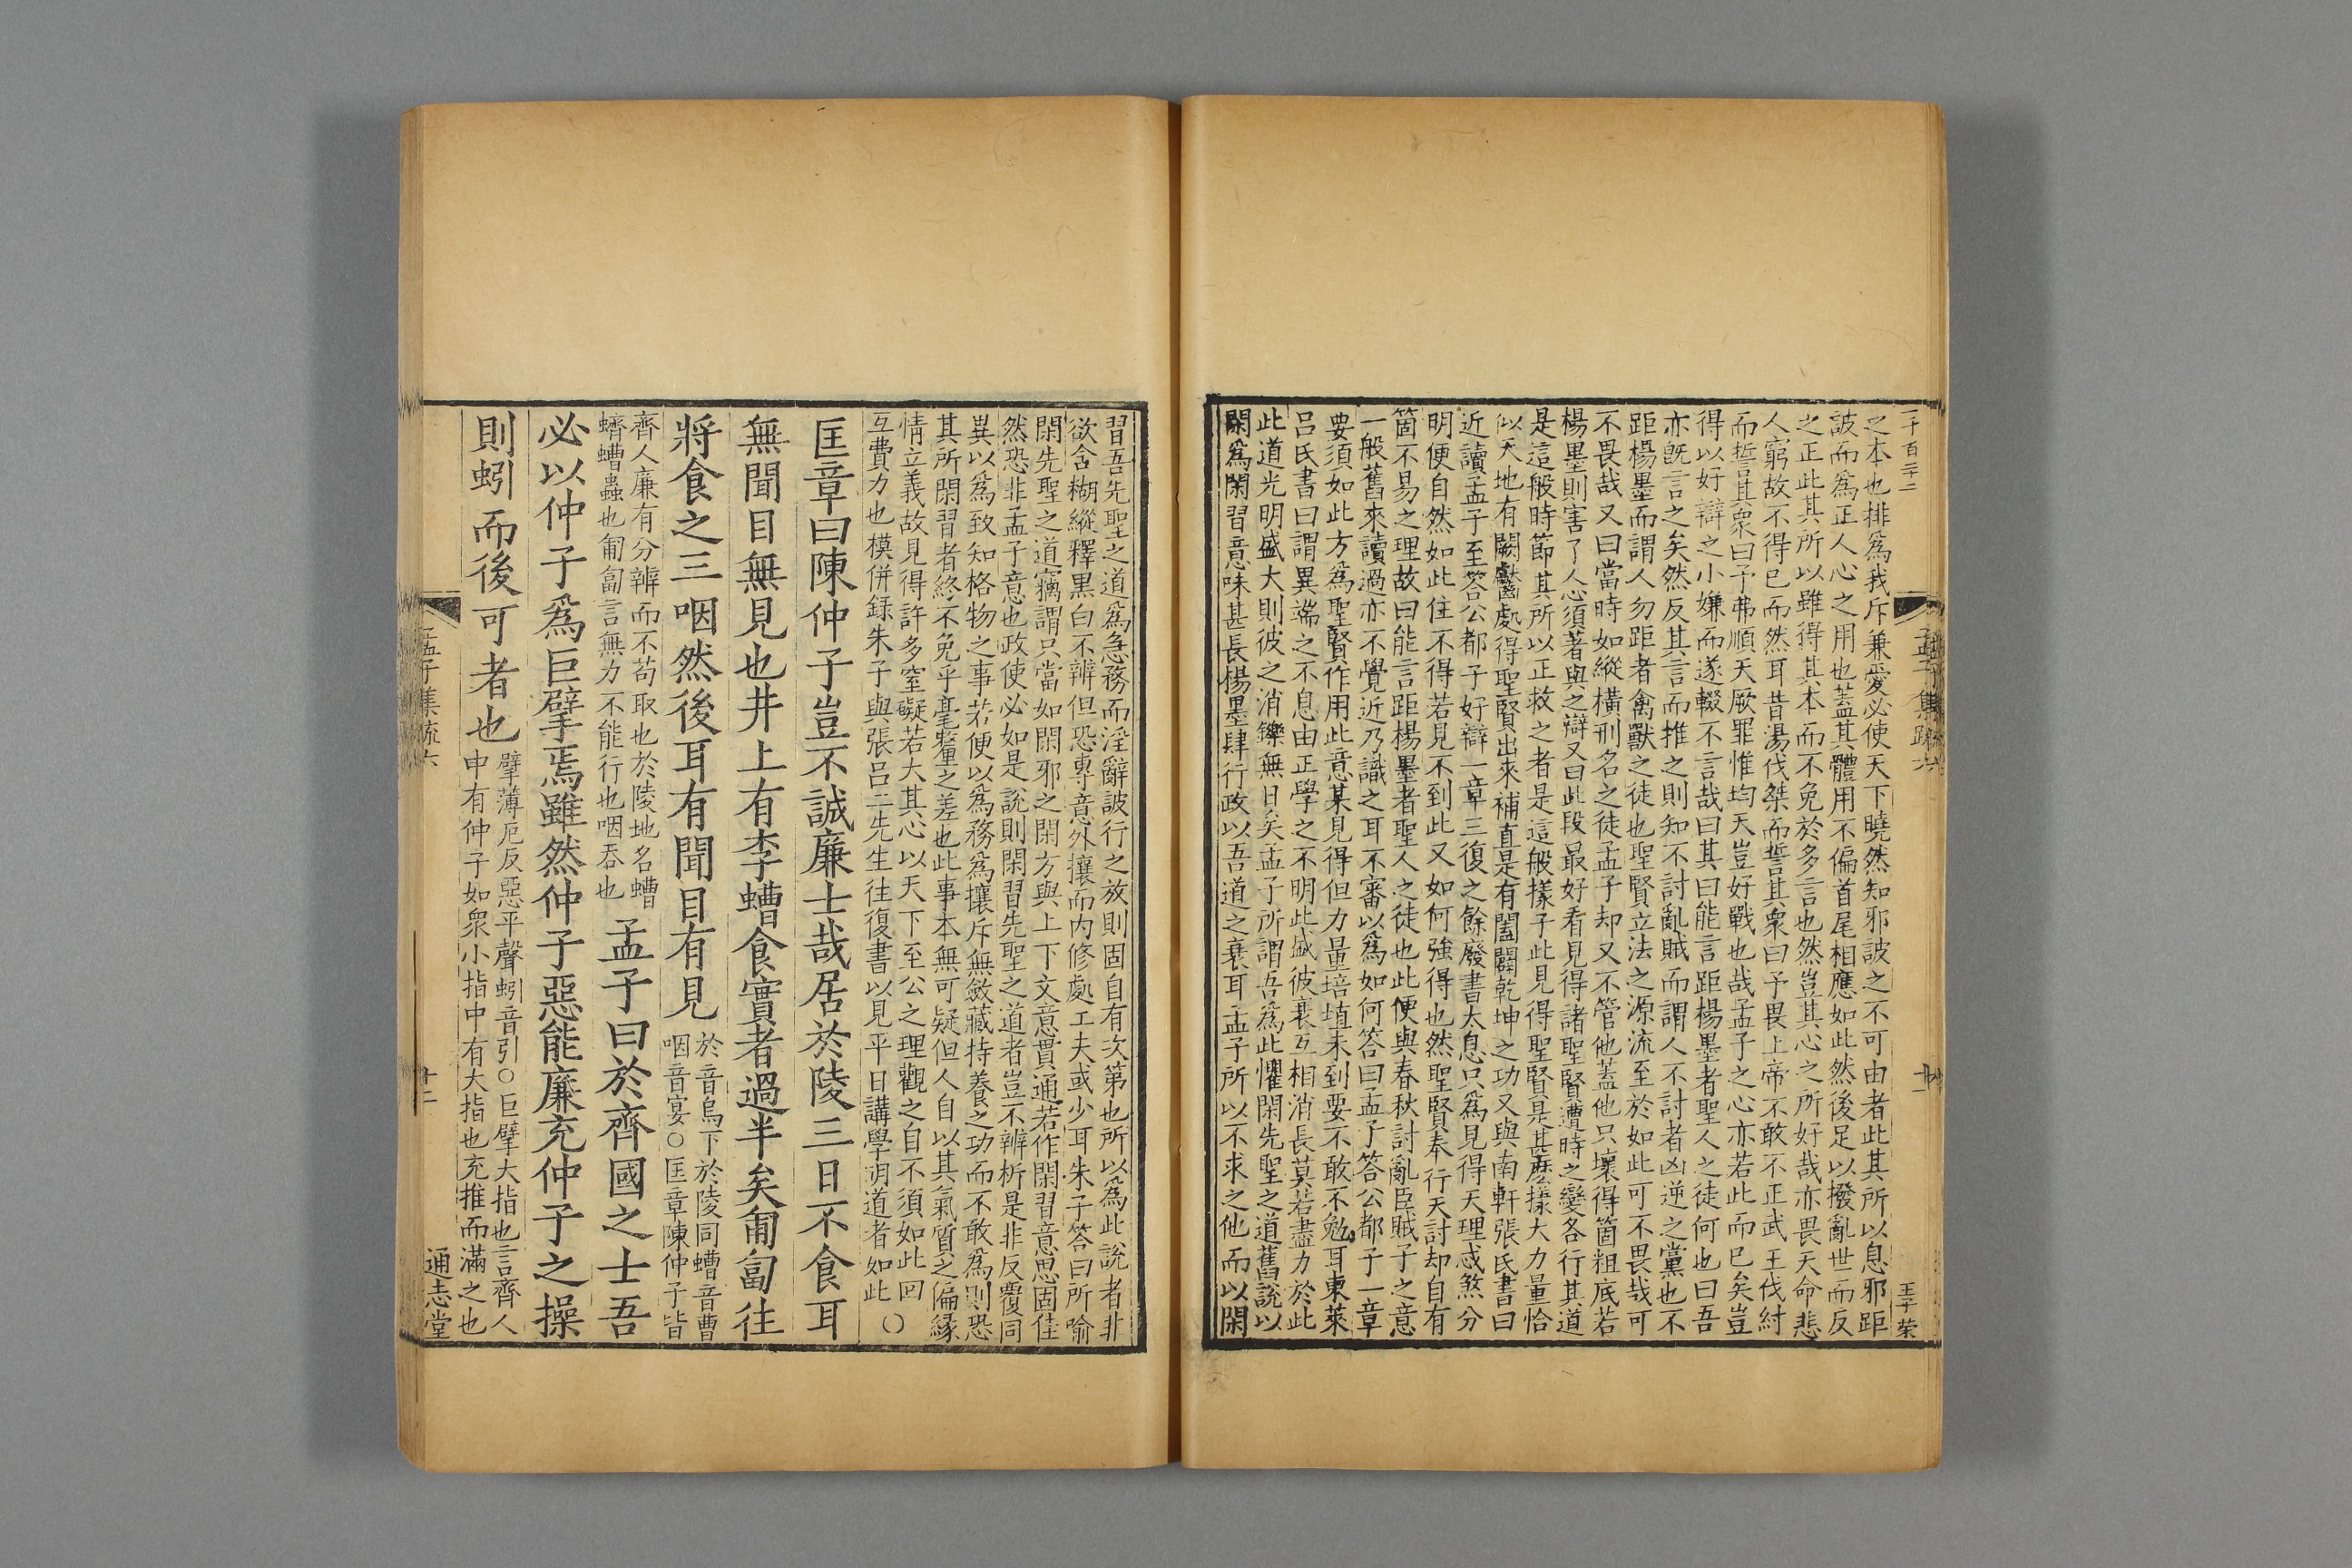 孟子集疏六
王子榮
之本也排為我斥兼愛必使天下曉然知邪詖之不可由者此其所以息邪距
詖而為正人心之用也蓋其體用不偏首尾相應如此然後足以撥亂世而反
之正此其所以雖得其本而不免於多言也然豈其心之所好哉亦畏天命悲
人窮故不得已而然耳昔湯伐桀而誓其衆曰予畏上帝不敢不正武王伐紂
而誓其衆曰予弗順天厥罪惟均天豈好戰也哉孟子之心亦若此而已矣豈
得以好辯之小嫌而遂輟不言哉曰其曰能言距楊墨者聖人之徒何也曰吾
亦旣言之矣然反其言而推之則知不討亂賊而謂人不討者凶逆之黨也不
距楊墨而謂人勿距者禽獸之徒也聖賢立法之源流至於如此可不畏哉可
不畏哉又曰當時如縱橫刑名之徒孟子却又不管他蓋他只壞得箇粗底若
楊墨則害了人心須著與之辯又曰此段最好看見得諸聖賢遭時之變各行其道
是這般時節其所以正救之者是這般樣子此見得聖賢是甚麽樣大力量恰
似天地有闕齾處得聖賢出來補直是有闔闢乾坤之功又與南軒張氏書曰
近讀孟子至答公都子好辯一章三復之餘廢書太息只為見得天理忒煞分
明便自然如此住不得若見不到此又如何強得也然聖賢奉行天討却自有
箇不易之理故曰能言距楊墨者聖人之徒也此便與春秋討亂臣賊子之意
一般舊來讀過亦不覺近乃識之耳不審以為如何答曰孟子答公都子一章
要須如此方為聖賢作用此意某見得但力量培埴未到要不敢不勉耳東萊
呂氏書曰謂異端之不息由正學之不明此盛彼衰互相消長莫若盡力於此
此道光明盛大則彼之消鑠無日矣孟子所謂吾為此懼閑先聖之道舊說以
閑為閑習意味甚長楊墨肆行政以吾道之衰耳孟子所以不求之他而以閑
習吾先聖之道為急務而淫辭詖行之放則固自有次第也所以為此說者非
欲含糊縱釋黑白不辨但恐專意外攘而內修處工夫或少耳朱子答曰所喻
閑先聖之道竊謂只當如閑邪之閑方與上下文意貫通若作閑習意思固佳
然恐非孟子意也政使必如是說則閑習先聖之道者豈不辨析是非反覆同
異以為致知格物之事若便以為務為攘斥無斂藏持養之功而不敢為則恐
其所閑習者終不免乎毫釐之差也此事本無可疑但人自以其氣質之偏緣
情立義故見得許多窒礙若大其心以天下至公之理觀之自不須如此回
互費力也模併録朱子與張呂二先生往復書以見平日講學明道者如此 ○
匡章曰陳仲子豈不誠廉士哉居於陵三日不食耳
無聞目無見也井上有李螬食實者過半矣匍匐往
將食之三咽然後耳有聞目有見 於音烏下於陵同螬音曹
咽音宴○匡章陳仲子皆
齊人廉有分辨而不苟取也於陵地名螬
蠐螬蟲也匍匐言無力不能行也咽吞也 孟子曰於齊國之士吾
必以仲子為巨擘焉雖然仲子惡能廉充仲子之操
則蚓而後可者也 擘薄厄反惡平聲蚓音引○巨擘大指也言齊人
中有仲子如衆小指中有大指也充推而滿之也
孟子集疏六
十二
通志堂